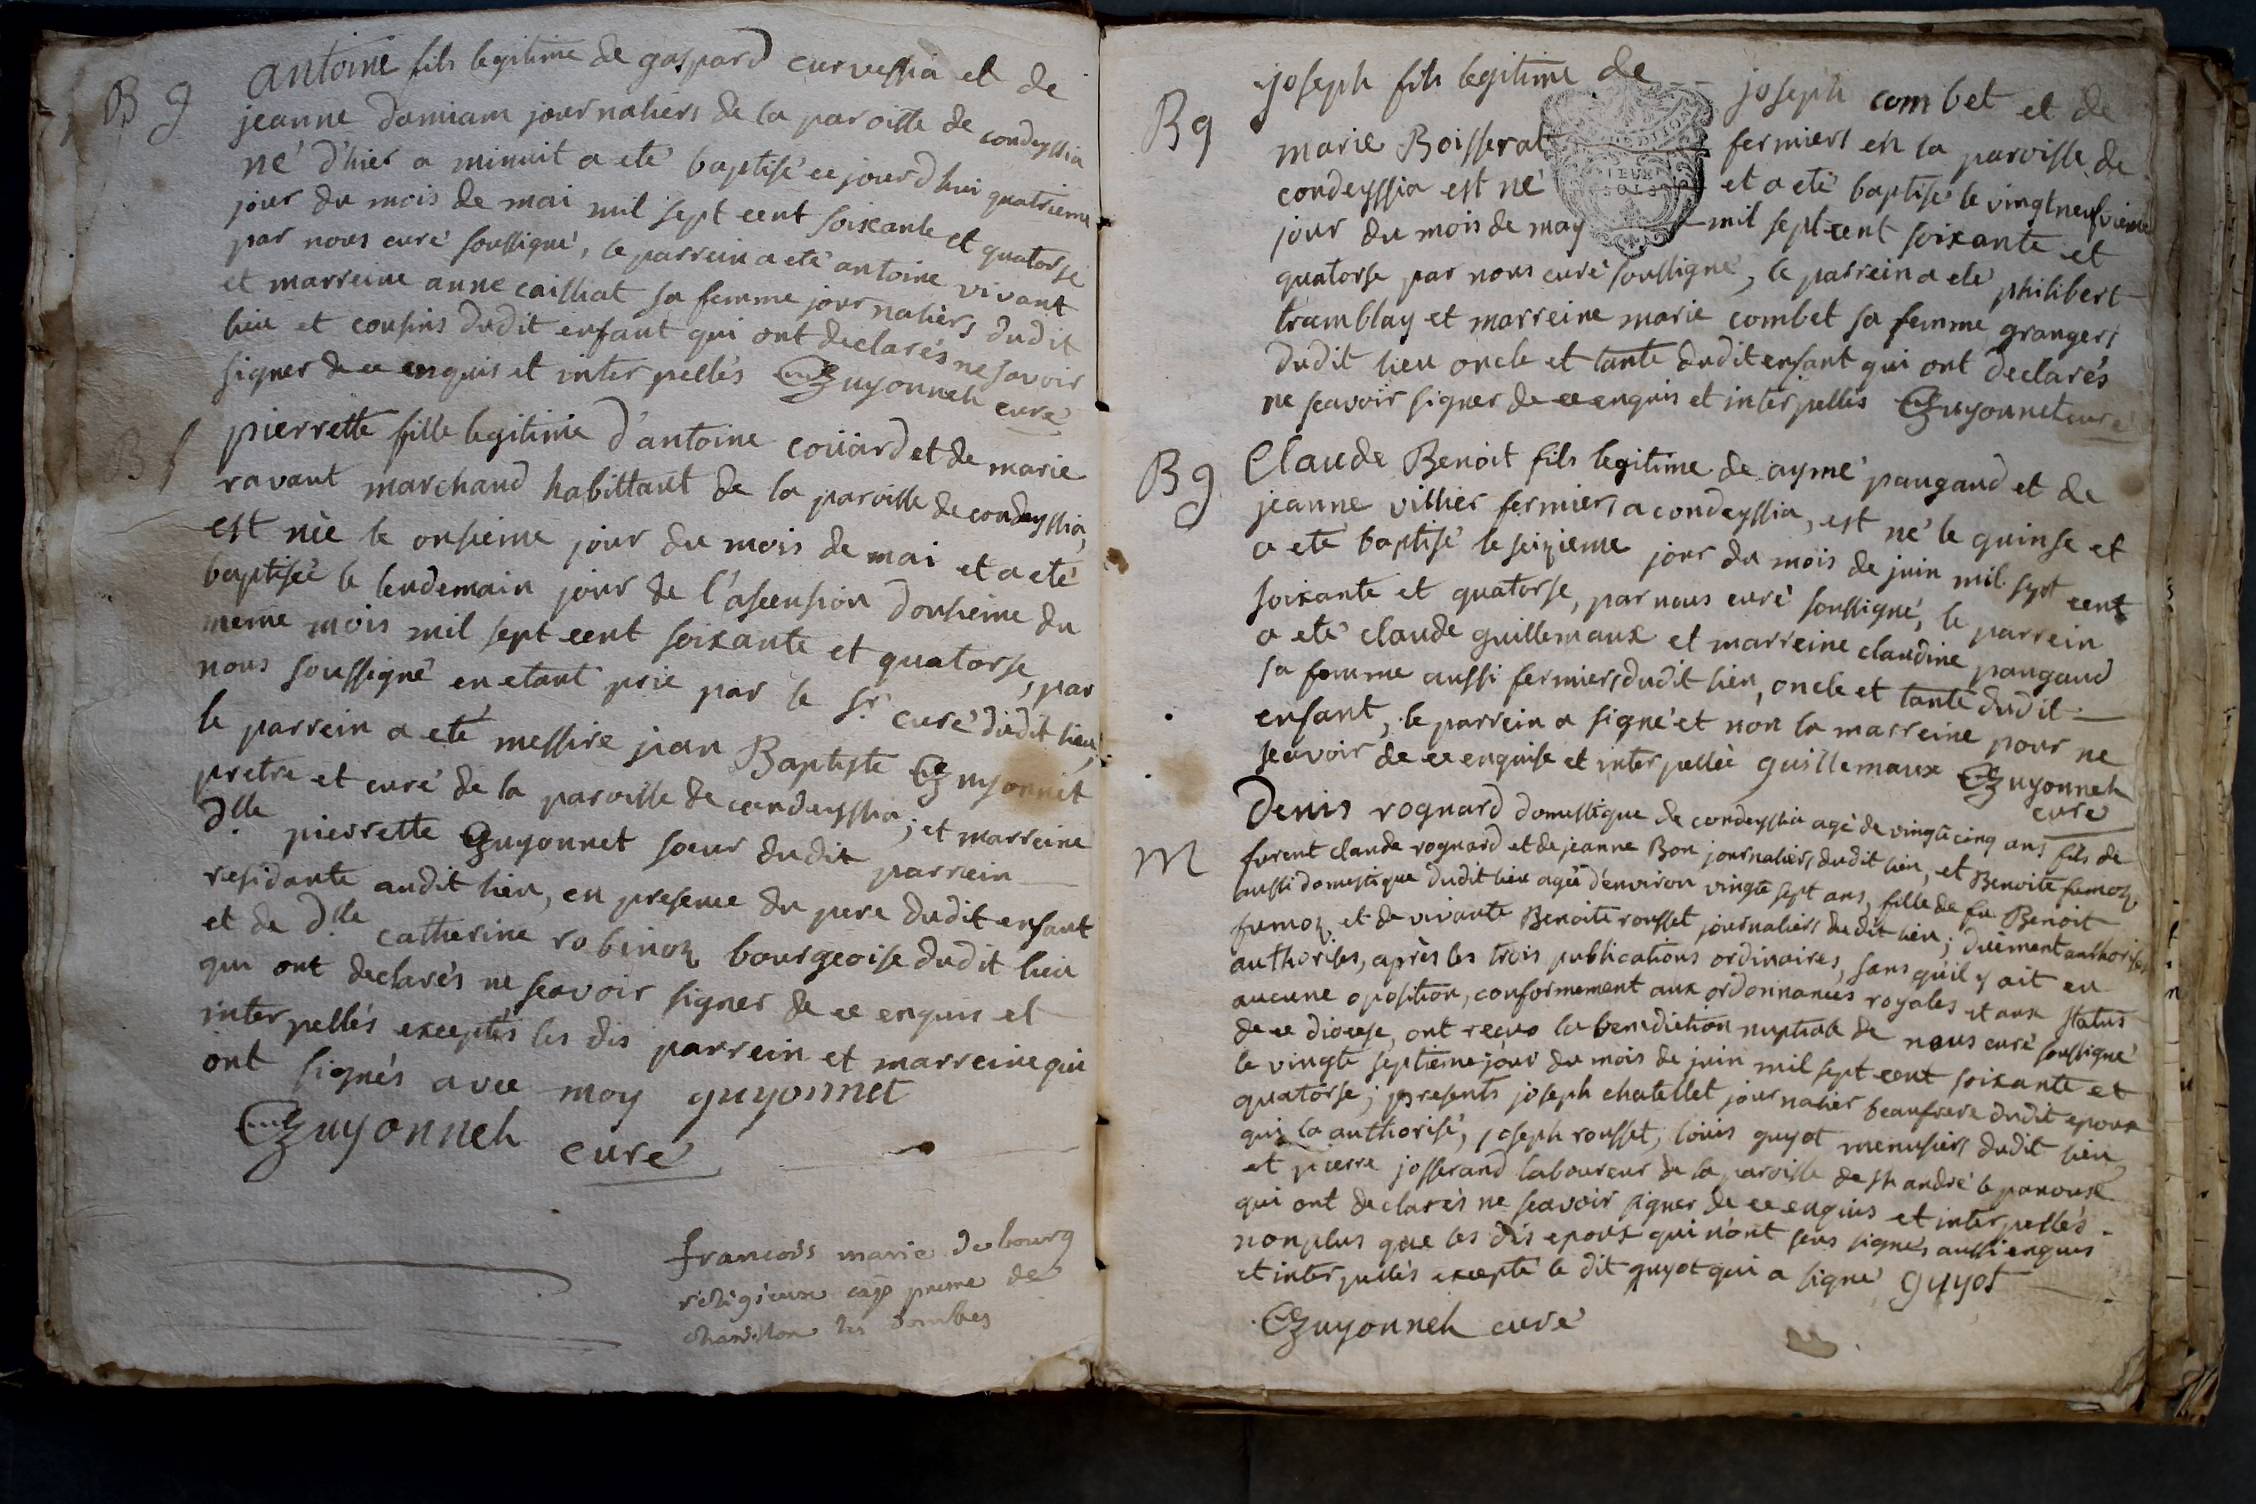 B g
antoine fils legitime de gaspard curvessia et de
jeanne damiam journaliers de la paroisse de condeyssia
né d'hier a minuit a eté baptisé ce jourdhui quatrieme
jour du mois de mai mil sept cent soixante et quatorse
par nous curé soussigné, le parrein a eté antoine vivant
et marreine anne cailliat sa femme journaliers dudit
lieu et cousins dudit enfant qui ont declarés ne savoir
signer de ce enquis et interpellés Guyonneh curé
B f
pierrette fille legitime d'antoine coüard et de marie
ravant marchand habittant de la paroisse de condeyssia,
est née le onsieme jour du mois de mai et a eté
baptisée le lendemain jour de l'ascension dousieme du
meme mois mil sept cent soixante et quatorse, par
nous soussigné en etant prié par le sr. curé dudit lieu,
le parrein a eté messire jean Baptiste Guyonnet
pretre et curé de la paroisse de condeyssia; et marreine
dlle pierrette Guyonnet sœur dudit parrein
residante audit lieu, en presence du pere dudit enfant
et de dlle catherine robinoz bourgeoise dudit lieu
qui ont declarés ne scavoir signer de ce enquis et
interpellés exceptés les dis parrein et marreine qui
ont signés avec moy guyonnet
Guyonneh curé
francois marie de bourg
religieux
les dombes
B g
joseph fils legitime de joseph combet et de
marie Boisserat fermiers en la paroisse de
condeyssia est né et a eté baptisé le vingt neufvieme
jour du mois de may mil sept cent soixante et
quatorse par nous curé soussigné, le parrein a eté philibert
tramblay et marreine marie combet sa femme grangers
dudit lieu oncle et tante dudit enfant qui ont declarés
ne scavoir signer de ce enquis et interpellés Guyonnet curé
B g
Claude Benoit fils legitime de aymé paugaud et de
jeanne villier fermiers a condeyssia, est né le quinse et
a eté baptisé le seizieme jour du mois de juin mil sept cent
soixante et quatorse, par nous curé soussigné, le parrein
a eté claude guillemaux et marreine claudine paugaud
sa femme aussi fermiers dudit lieu, oncle et tante dudit
enfant, le parrein a signé et non la marreine pour ne
scavoir de ce enquise et interpellée guillemaux Guyonneh
curé
M
Denis rognard domestique de condeyssia agé de vingt cinq ans fils de
furent claude rognard et de jeanne Bon journaliers dudit lieu, et Benoite fumoz
aussi domestique dudit lieu agée d'environ vingte sept ans, fille de fu Benoit
fumoz et de vivante Benoite rousset journaliers du dit lieu; duement authorises
authorises, après les trois publications ordinaires, sans qu'il y ait eu
aucune oposition, conformement aux ordonnances royales et aux status
de ce diocese, ont reçus la benediction nuptiale de nous curé soussigné
le vingte septieme jour du mois de juin mil sept cent soixante et
quatorse; presents joseph chatellet journalier beaufrere dudit epoux
qui la authorisé, joseph rousset, louis guyot menusiers dudit lieu,
et pierre josserand laboureur de la paroisse de st andré le panoux
qui ont declarés ne scavoir signer de ce enquis et interpellés
nonplus que les dis epoux qui n'ont signés aussi enquis
et interpellés excepté le dit guyot qui a signé guyot
Guyonneh curé